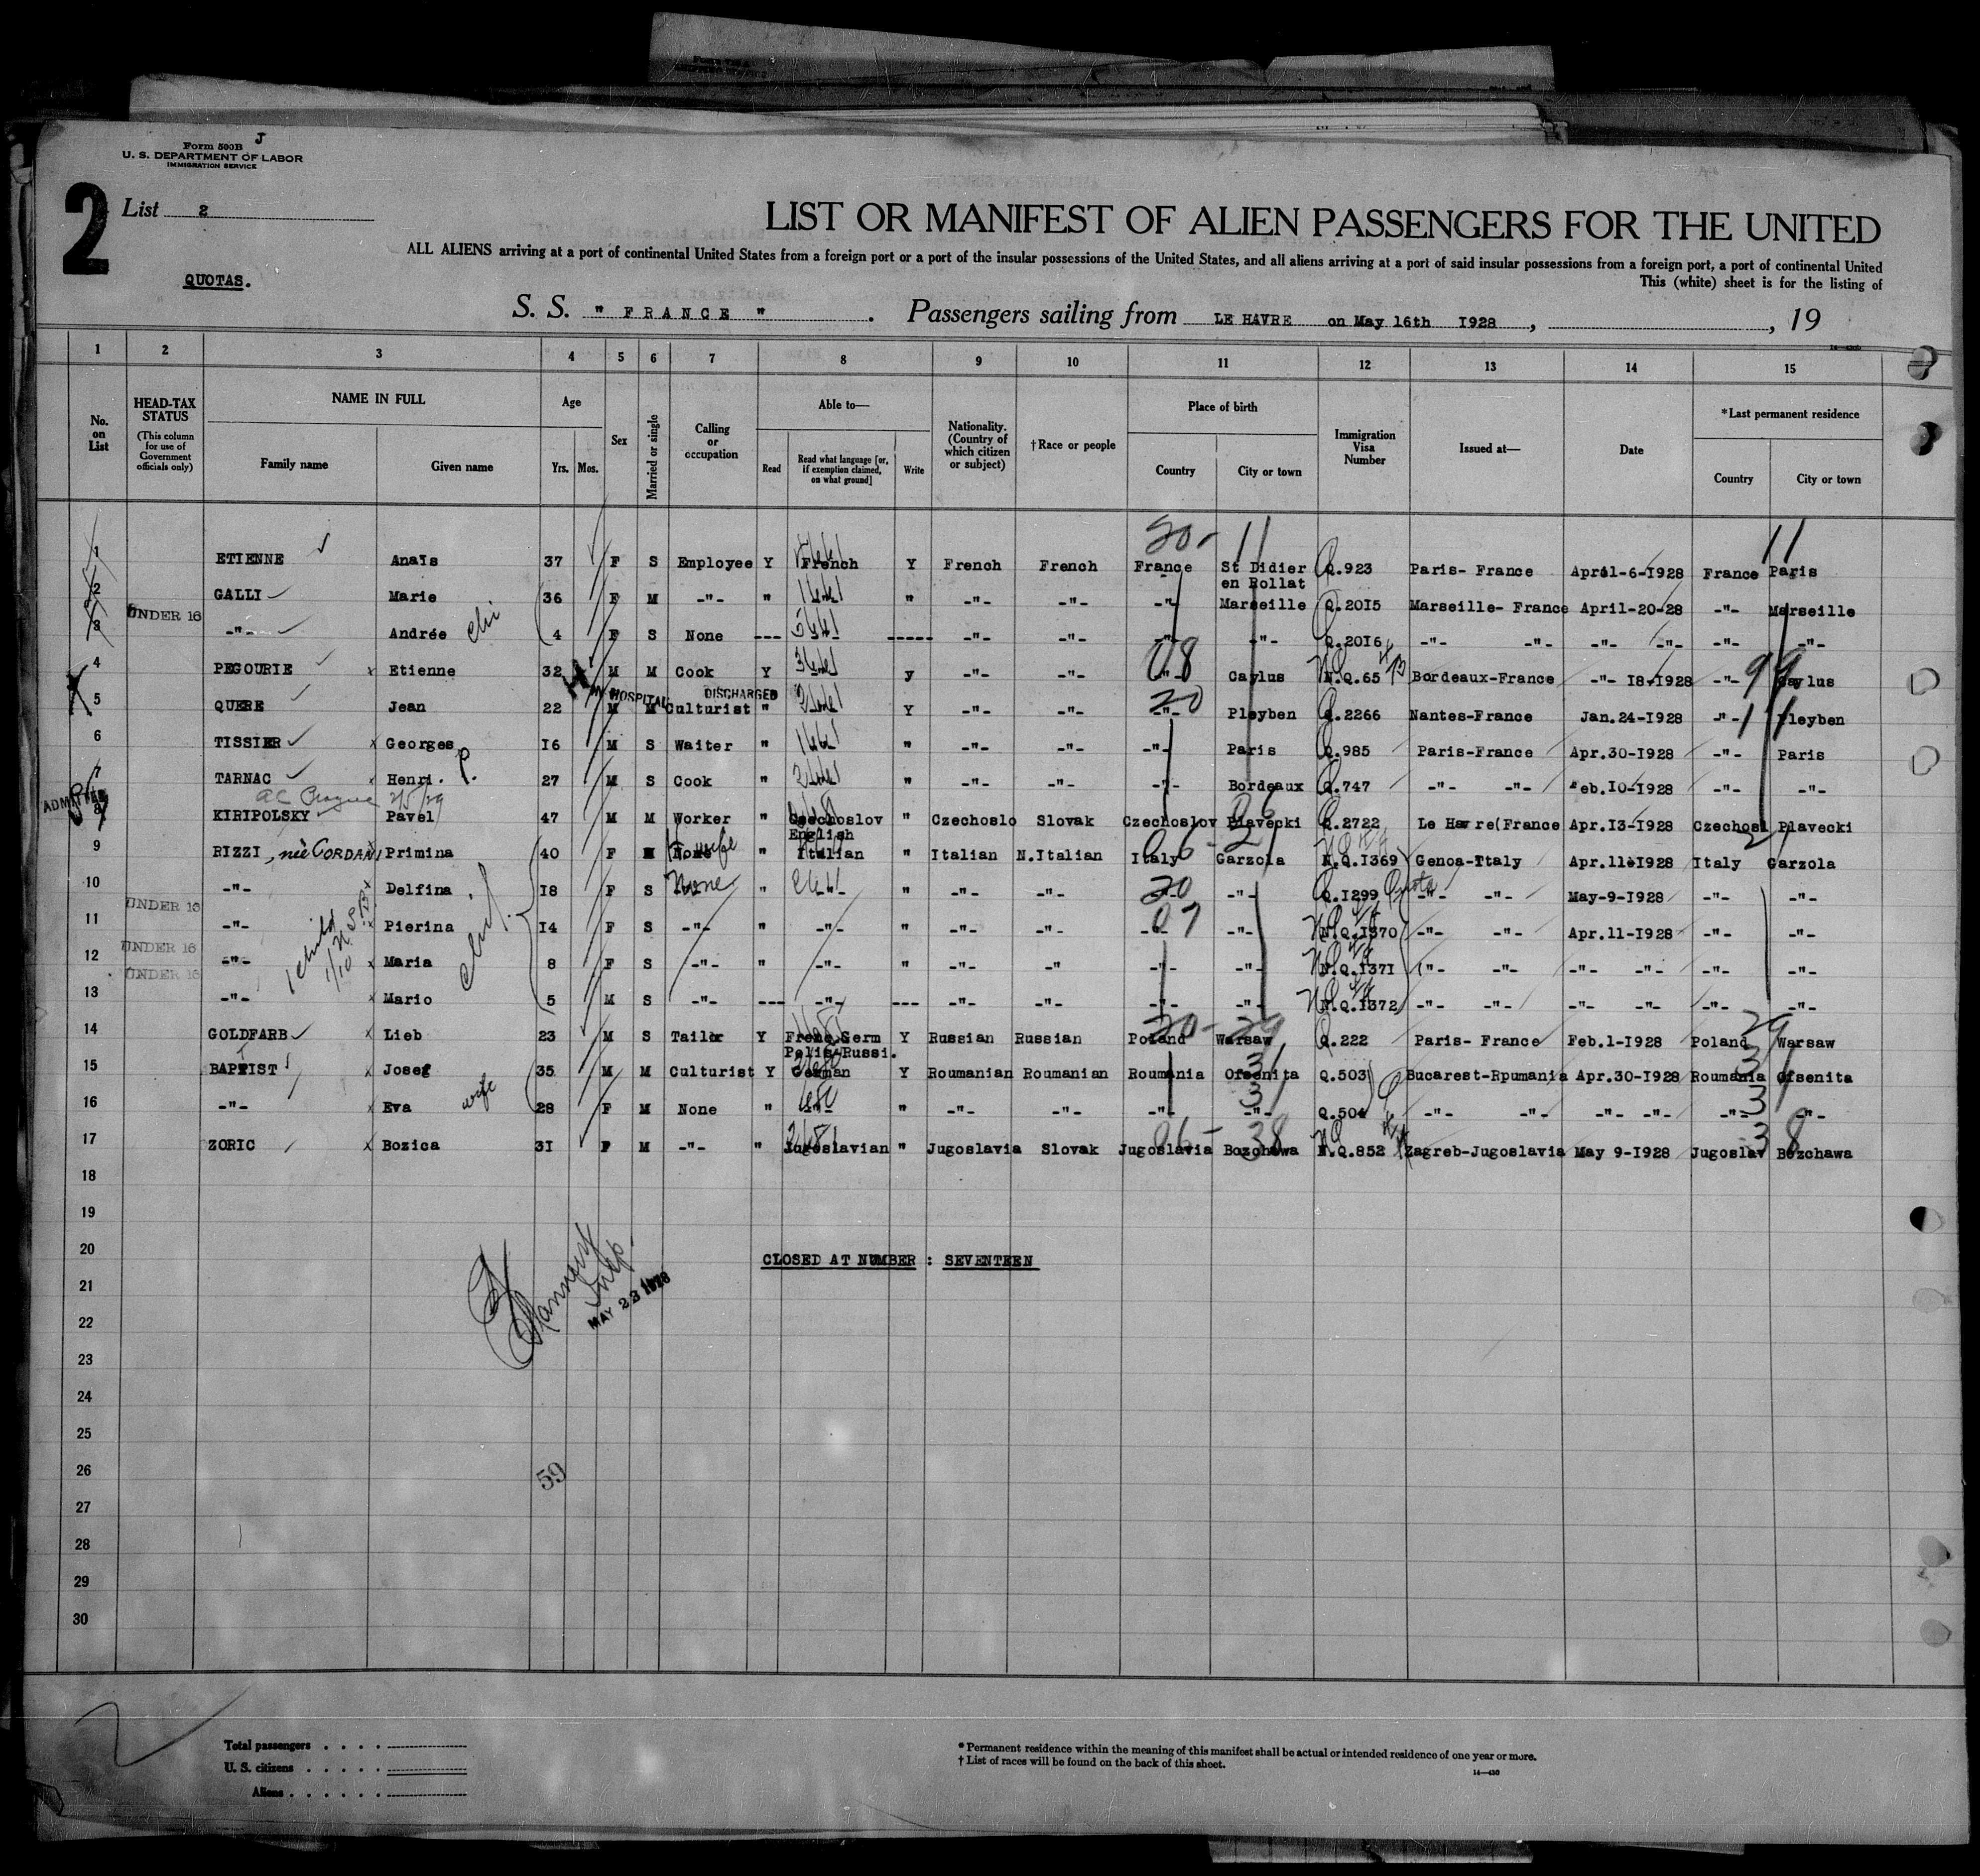 Form 500B J
U. S. DEPARTMENT OF LABOR
IMMIGRATION SERVICE
2
List 2
LIST OR MANIFEST OF ALIEN PASSENGERS FOR THE UNITED
ALL ALIENS arriving at a port of continental United States from a foreign port or a port of the insular possessions of the United States, and all aliens arriving at a port of said insular possessions from a foreign port, a port of continental United
This (white) sheet is for the listing of
QUOTAS.
S. S. " FRANCE " . Passengers sailing from LE HAVRE on May 16th 1928 , , 19
1 2 3 4 5 6 7 8 9 10 11 12 13 14 15
No. on List
HEAD-TAX STATUS
(This column for use of Government officials only)
NAME IN FULL
Family name Given name
Age
Yrs. Mos.
Sex
Married or single
Calling or occupation
Able to—
Read Read what language [or, if exemption claimed, on what ground] Write
Nationality. (Country of which citizen or subject)
†Race or people
Place of birth
Country City or town
Immigration Visa Number
Issued at—
Date
*Last permanent residence
Country City or town
20- 11 11
1 ETIENNE Anaïs 37 F S Employee Y French Y French French France St Didier en Rollat Q.923 Paris- France April-6-1928 France Paris
2 GALLI Marie 36 F M -"- " " -"- -"- -"- Marseille Q.2015 Marseille- France April-20-28 -"- Marseille
3 UNDER 16 -"- Andrée 4 F S None --- ----- -"- -"- -"- -"- Q.2016 -"- -"- -"- -"- -"- -"-
4 PEGOURIE x Etienne 32 M M Cook Y y -"- -"- 08 -"- Caylus N.Q.65 Bordeaux-France -"- 18-1928 -"- 99 Caylus
IN HOSPITAL DISCHARGED
5 QUERE Jean 22 M M Culturist " Y -"- -"- 20 -"- Pleyben Q.2266 Nantes-France Jan.24-1928 -"- 11 Pleyben
6 TISSIER x Georges 16 M S Waiter " " -"- -"- -"- Paris Q.985 Paris-France Apr.30-1928 -"- Paris
7 TARNAC x Henri. P. 27 M S Cook " " -"- -"- -"- Bordeaux Q.747 -"- -"- Feb.10-1928 -"- -"-
ADMITTED
8 KIRIPOLSKY Pavel 47 M M Worker " Czechoslov English " Czechoslo Slovak Czechoslov Plavecki Q.2722 Le Havre(France Apr.13-1928 Czechosl Plavecki
9 RIZZI, née CORDANI Primina 40 F M None H.wife " Italian " Italian N.Italian Italy Garzola N.Q.1369 Genoa-Ttaly Apr.11-1928 Italy Garzola
10 -"- Delfina 18 F S None " " -"- -"- 20 -"- Q.1299 Quota -"- -"- May-9-1928 -"- -"-
11 UNDER 16 -"- Pierina 14 F S -"- " -"- " -"- -"- 07 -"- N.Q.1370 -"- -"- Apr.11-1928 -"- -"-
12 UNDER 16 -"- x Maria 8 F S -"- " -"- " -"- -" -"- -"- N.Q.1371 -"- -"- -"- -"- -"- -"-
13 UNDER 16 -"- x Mario 5 M S -"- --- -"- --- -"- -"- -"- -"- N.Q.1372 -"- -"- -"- -"- -"- -"-
14 GOLDFARB x Lieb 23 M S Tailor Y Frenc.Germ Polis.Russi. Y Russian Russian Poland Warsaw Q.222 Paris- France Feb.1-1928 Poland Warsaw
15 BAPTIST x Josef 35 M M Culturist Y German Y Roumanian Roumanian Roumania Ofsenita Q.503 Bucarest-Rpumania Apr.30-1928 Roumania Ofsenita
16 -"- x Eva wife 28 F M None " -"- " -"- -"- -"- -"- Q.504 -"- -"- -"- -"- -"- -"-
17 ZORIC x Bozica 31 F M -"- " Jugoslavian " Jugoslavia Slovak Jugoslavia Bozchawa N.Q.852 Zagreb-Jugoslavia May 9-1928 Jugoslav Bozchawa
18
19
20 CLOSED AT NUMBER : SEVENTEEN
21
MAY 23 1928
22
23
24
25
26
59
27
28
29
30
Total passengers . . . .
U. S. citizens . . . . .
Aliens . . . . . .
* Permanent residence within the meaning of this manifest shall be actual or intended residence of one year or more.
† List of races will be found on the back of this sheet.
14—430